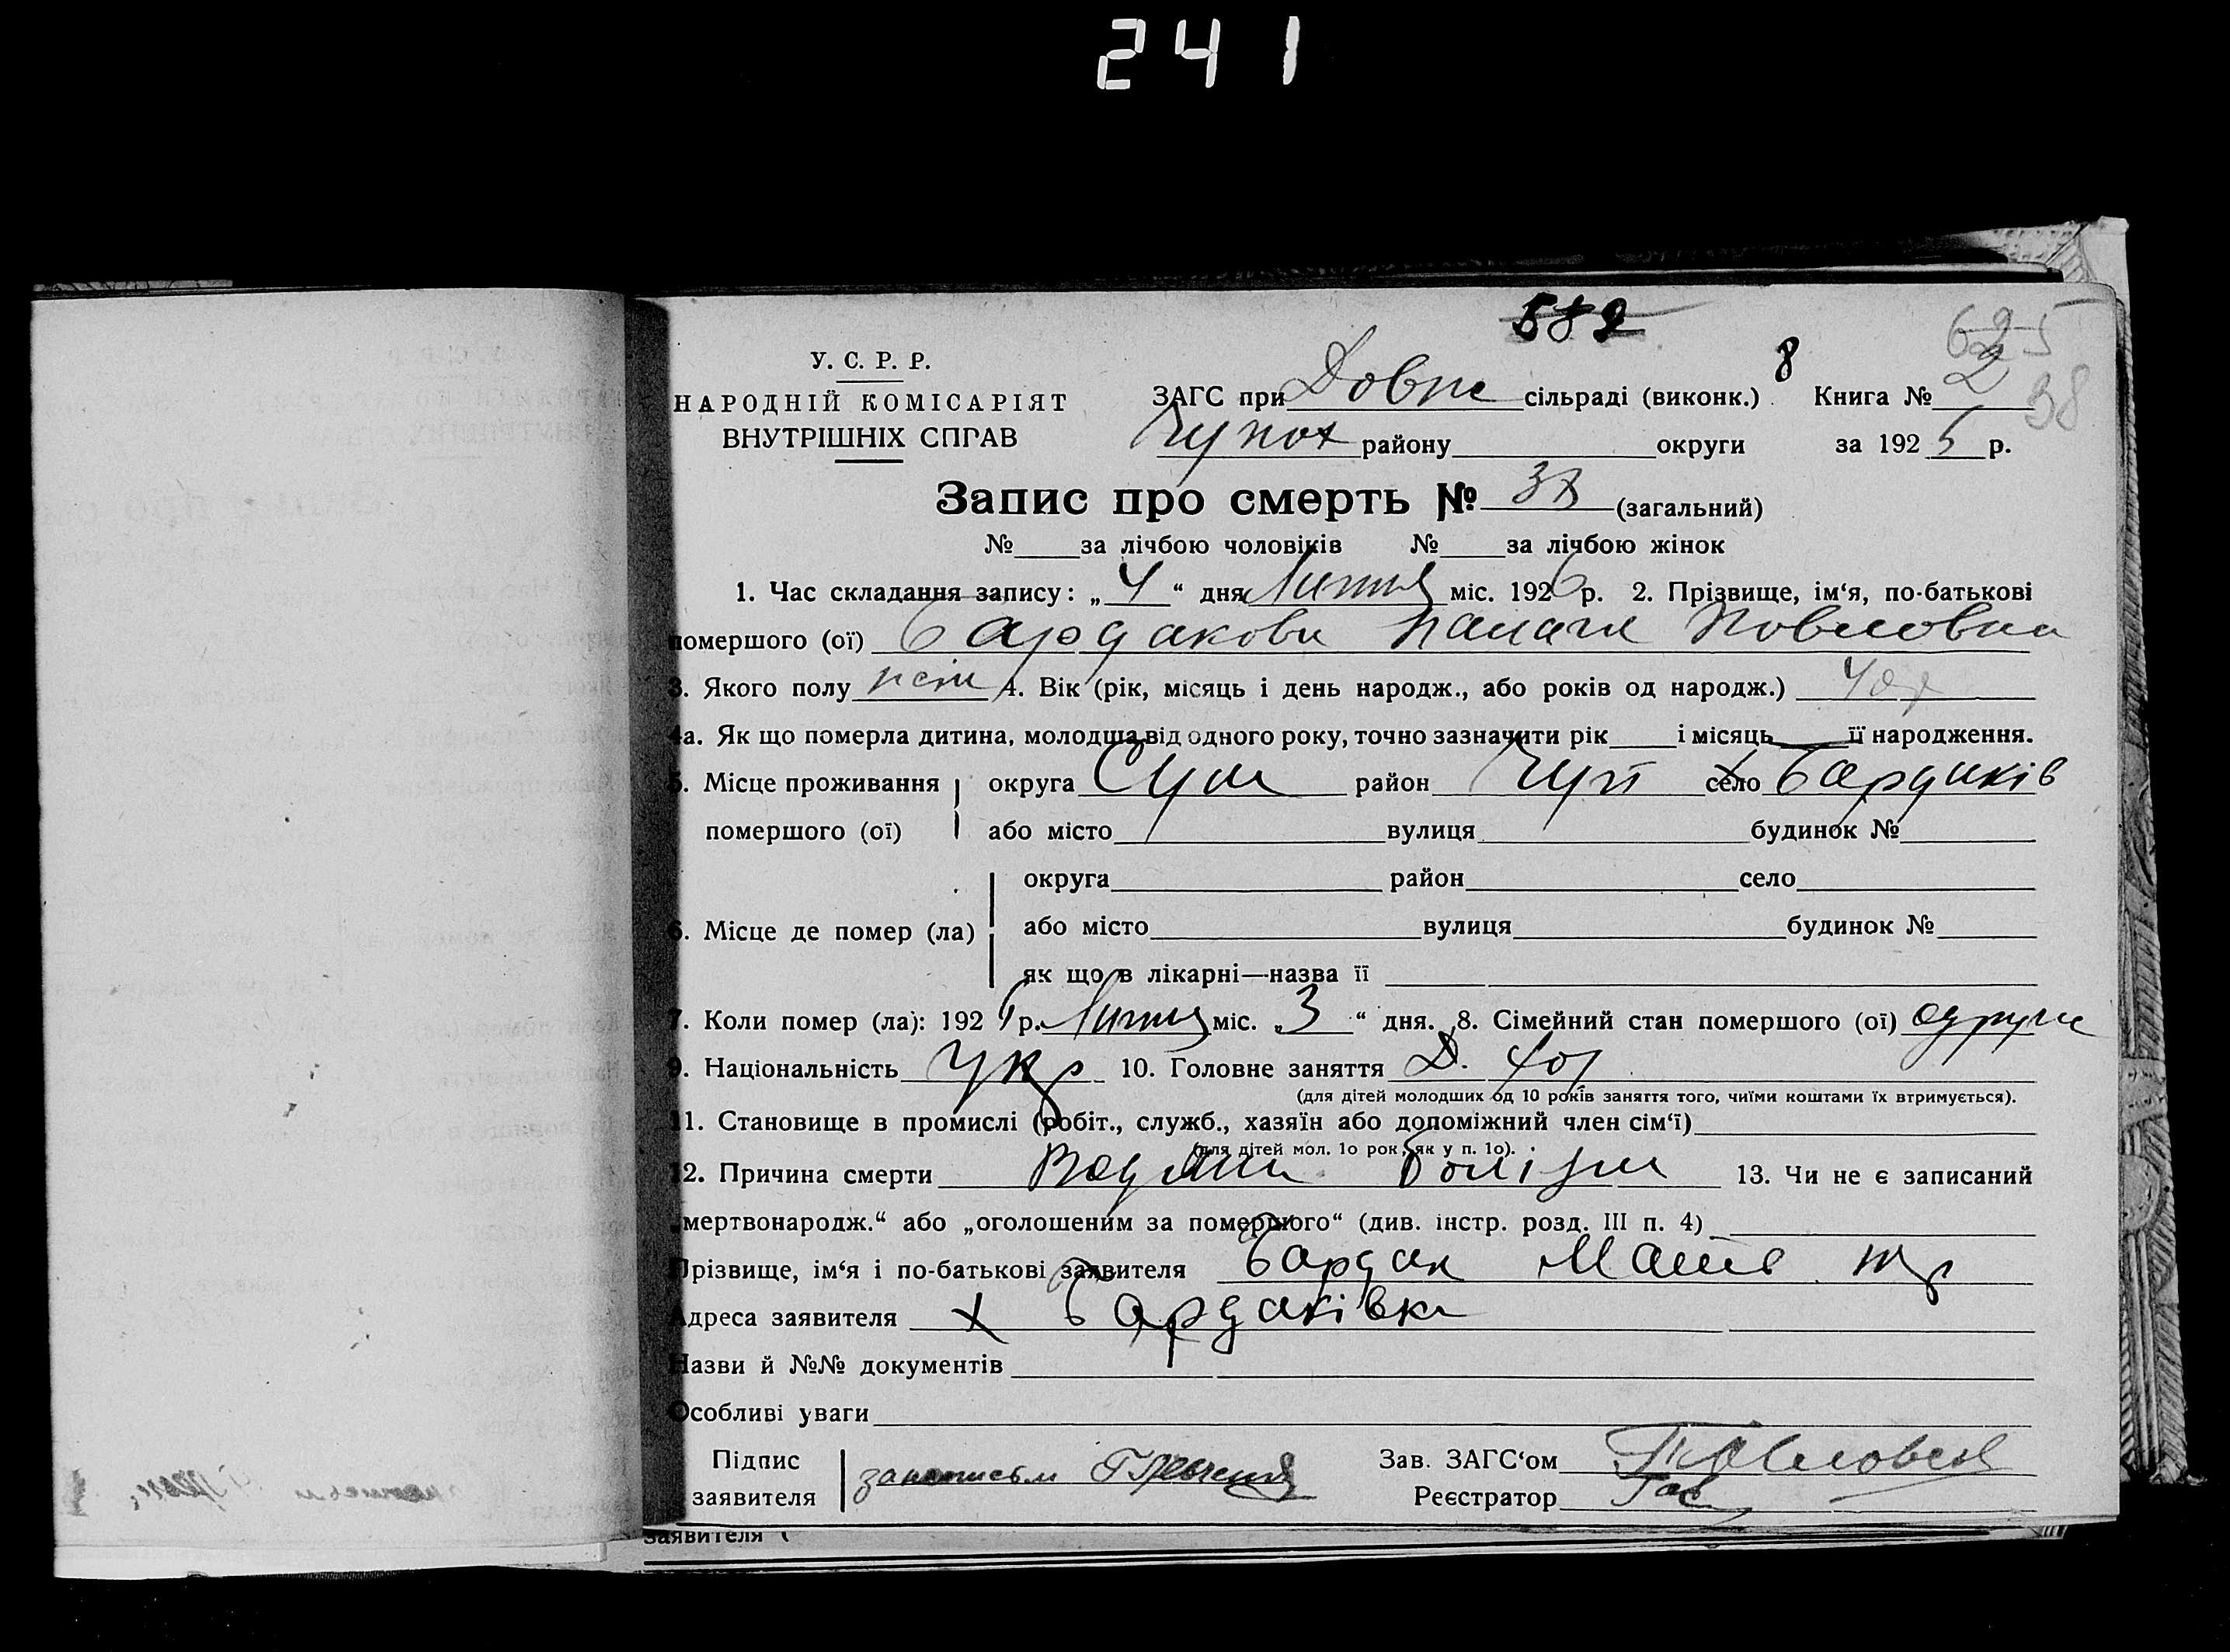 241
582
625
У. С. Р. Р.
8
2
38
НАРОДНІЙ КОМІСАРІЯТ
ВНУТРІШНІХ СПРАВ
ЗАГС при Довж сільраді (виконк.) Книга №
Чупах району округи за 1925 р.
Запис про смерть № 38 (загальний)
№ за лічбою чоловіків № за лічбою жінок
1. Час складання запису: „4“ дня Липня міс. 1926 р. 2. Прізвище, ім‘я, по-батькові
помершого (ої) Бардакова Палаги Повловна
3. Якого полу 4. Вік (рік, місяць і день народж., або років од народж.)
4а. Як що померла дитина, молодша від одного року, точно зазначити рік і місяць її народження.
5. Місце проживання округа Сум район Чуп село х Бардаків
помершого (ої) або місто вулиця будинок №
округа район село
6. Місце де помер (ла) або місто вулиця будинок №
як що в лікарні—назва її
7. Коли помер (ла): 1926 р. Липня міс. „3“ дня. 8. Сімейний стан помершого (ої) одруж
9. Національність Укр 10. Головне заняття Д. Хоз
(для дітей молодших од 10 років заняття того, чиїми коштами їх втримується).
11. Становище в промислі (робіт., служб., хазяїн або допоміжний член сім‘ї)
(для дітей мол. 1о рок, як у п. 1о).
12. Причина смерти Водяна болізнь 13. Чи не є записаний
„мертвонародж.“ або „оголошеним за помершого“ (див. інстр. розд. III п. 4)
Прізвище, ім‘я і по-батькові заявителя Бардак
Адреса заявителя х Бардаківка
Назви й №№ документів
Особливі уваги
Підпис
заявителя
Зав. ЗАГС‘ом
Реєстратор
заявителя